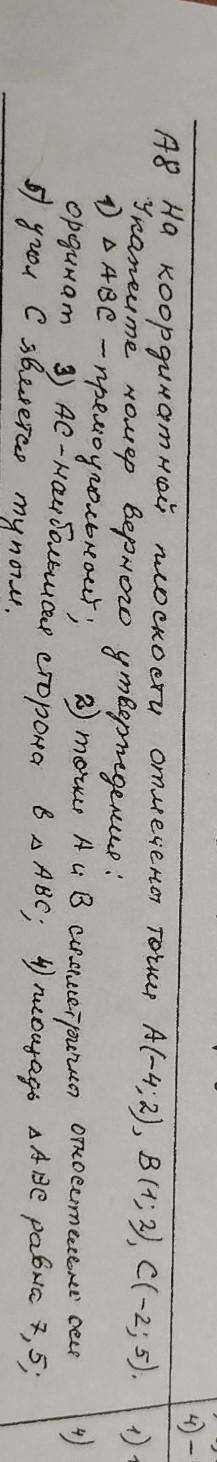 А8 На координатной плоскости отмечены точки А(-4;2), В(1;2), С(-2;5).
Укажите номер верного утверждения:
1) △ АВС - прямоугольный; 2) точки А и В симметричны относительно оси
ординат 3) АС - наибольшая сторона в △ АВС; 4) площадь △ АВС равна 7,5;
5) угол С является тупым.
4) -
1)
4)